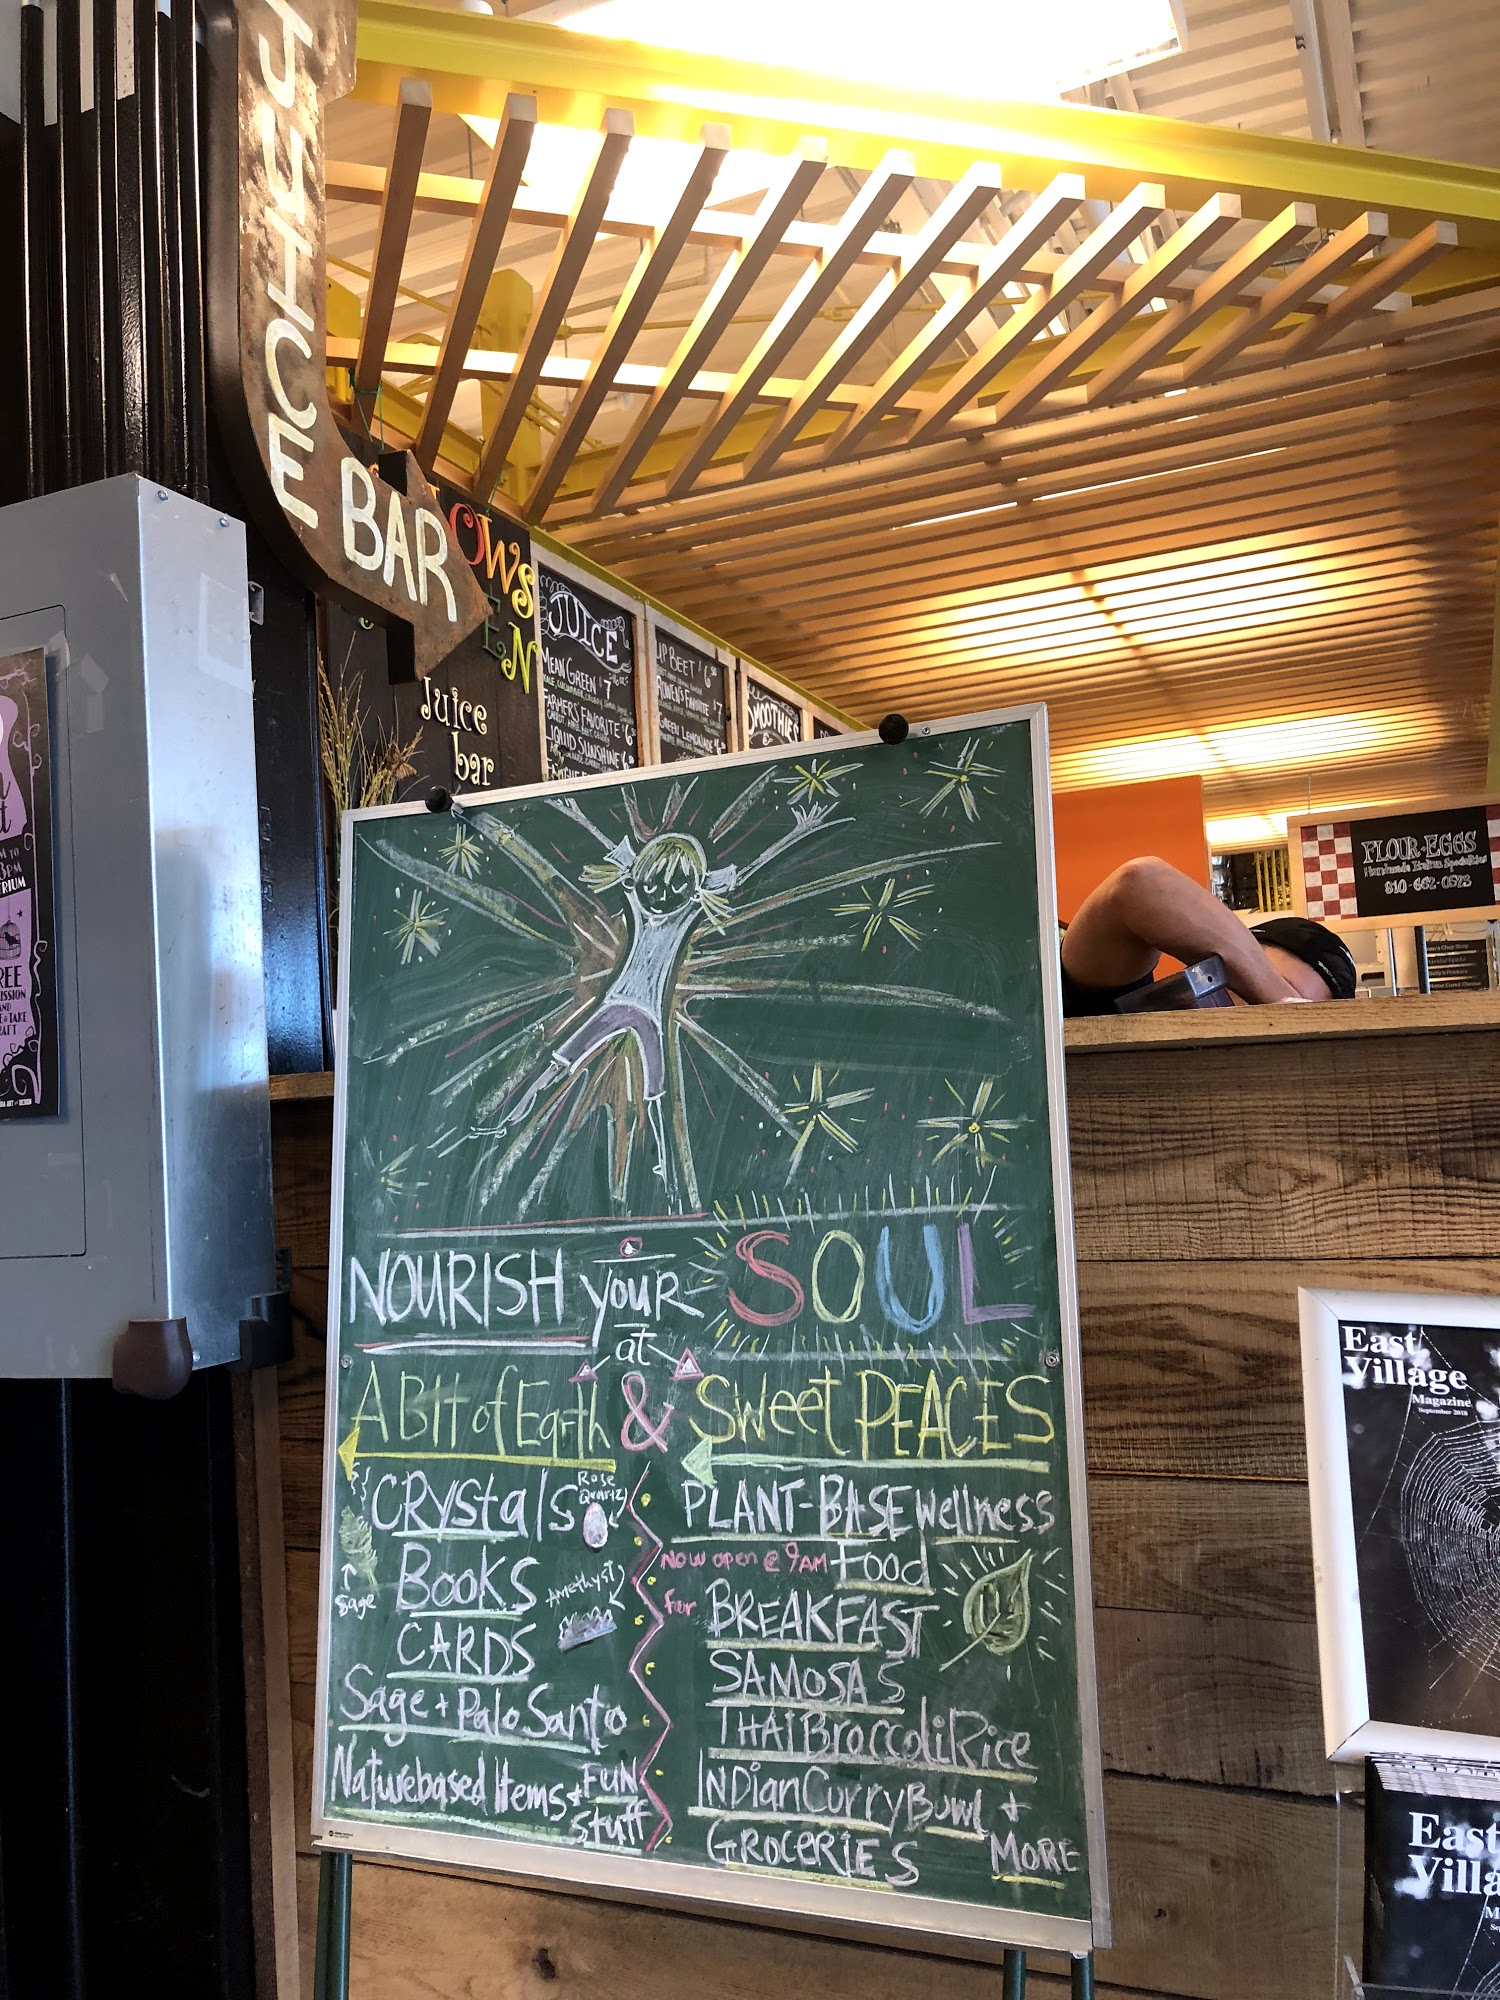 JUICE
BAR
OWS
EN
Juice
bar
JUICE
MEAN GREEN $7
FARMERS' FAVORITE $6.50
LIQUID SUNSHINE $6.50
UP BEET $6.50
ROWEN'S FAVORITE $7
GREEN LEMONADE
SMOOTHIES
FLOUR + EGGS
Handmade Italian Specialties
810-662-0573
NOURISH your SOUL
at
A BIt of Earth & Sweet PEACES
CRystals
Rose
Quartz
Sage
BOOKS
Amethyst
CARDS
Sage + Palo Santo
Naturebased Items + FUN
Stuff
PLANT-BASE wellness
Now open @ 9AM Food
for BREAKFAST
SAMOSAS
THAI Broccoli Rice
INDian Curry Bowl +
GROCERIES MORE
East
Village
Magazine
September 2018
East
Villa
REE